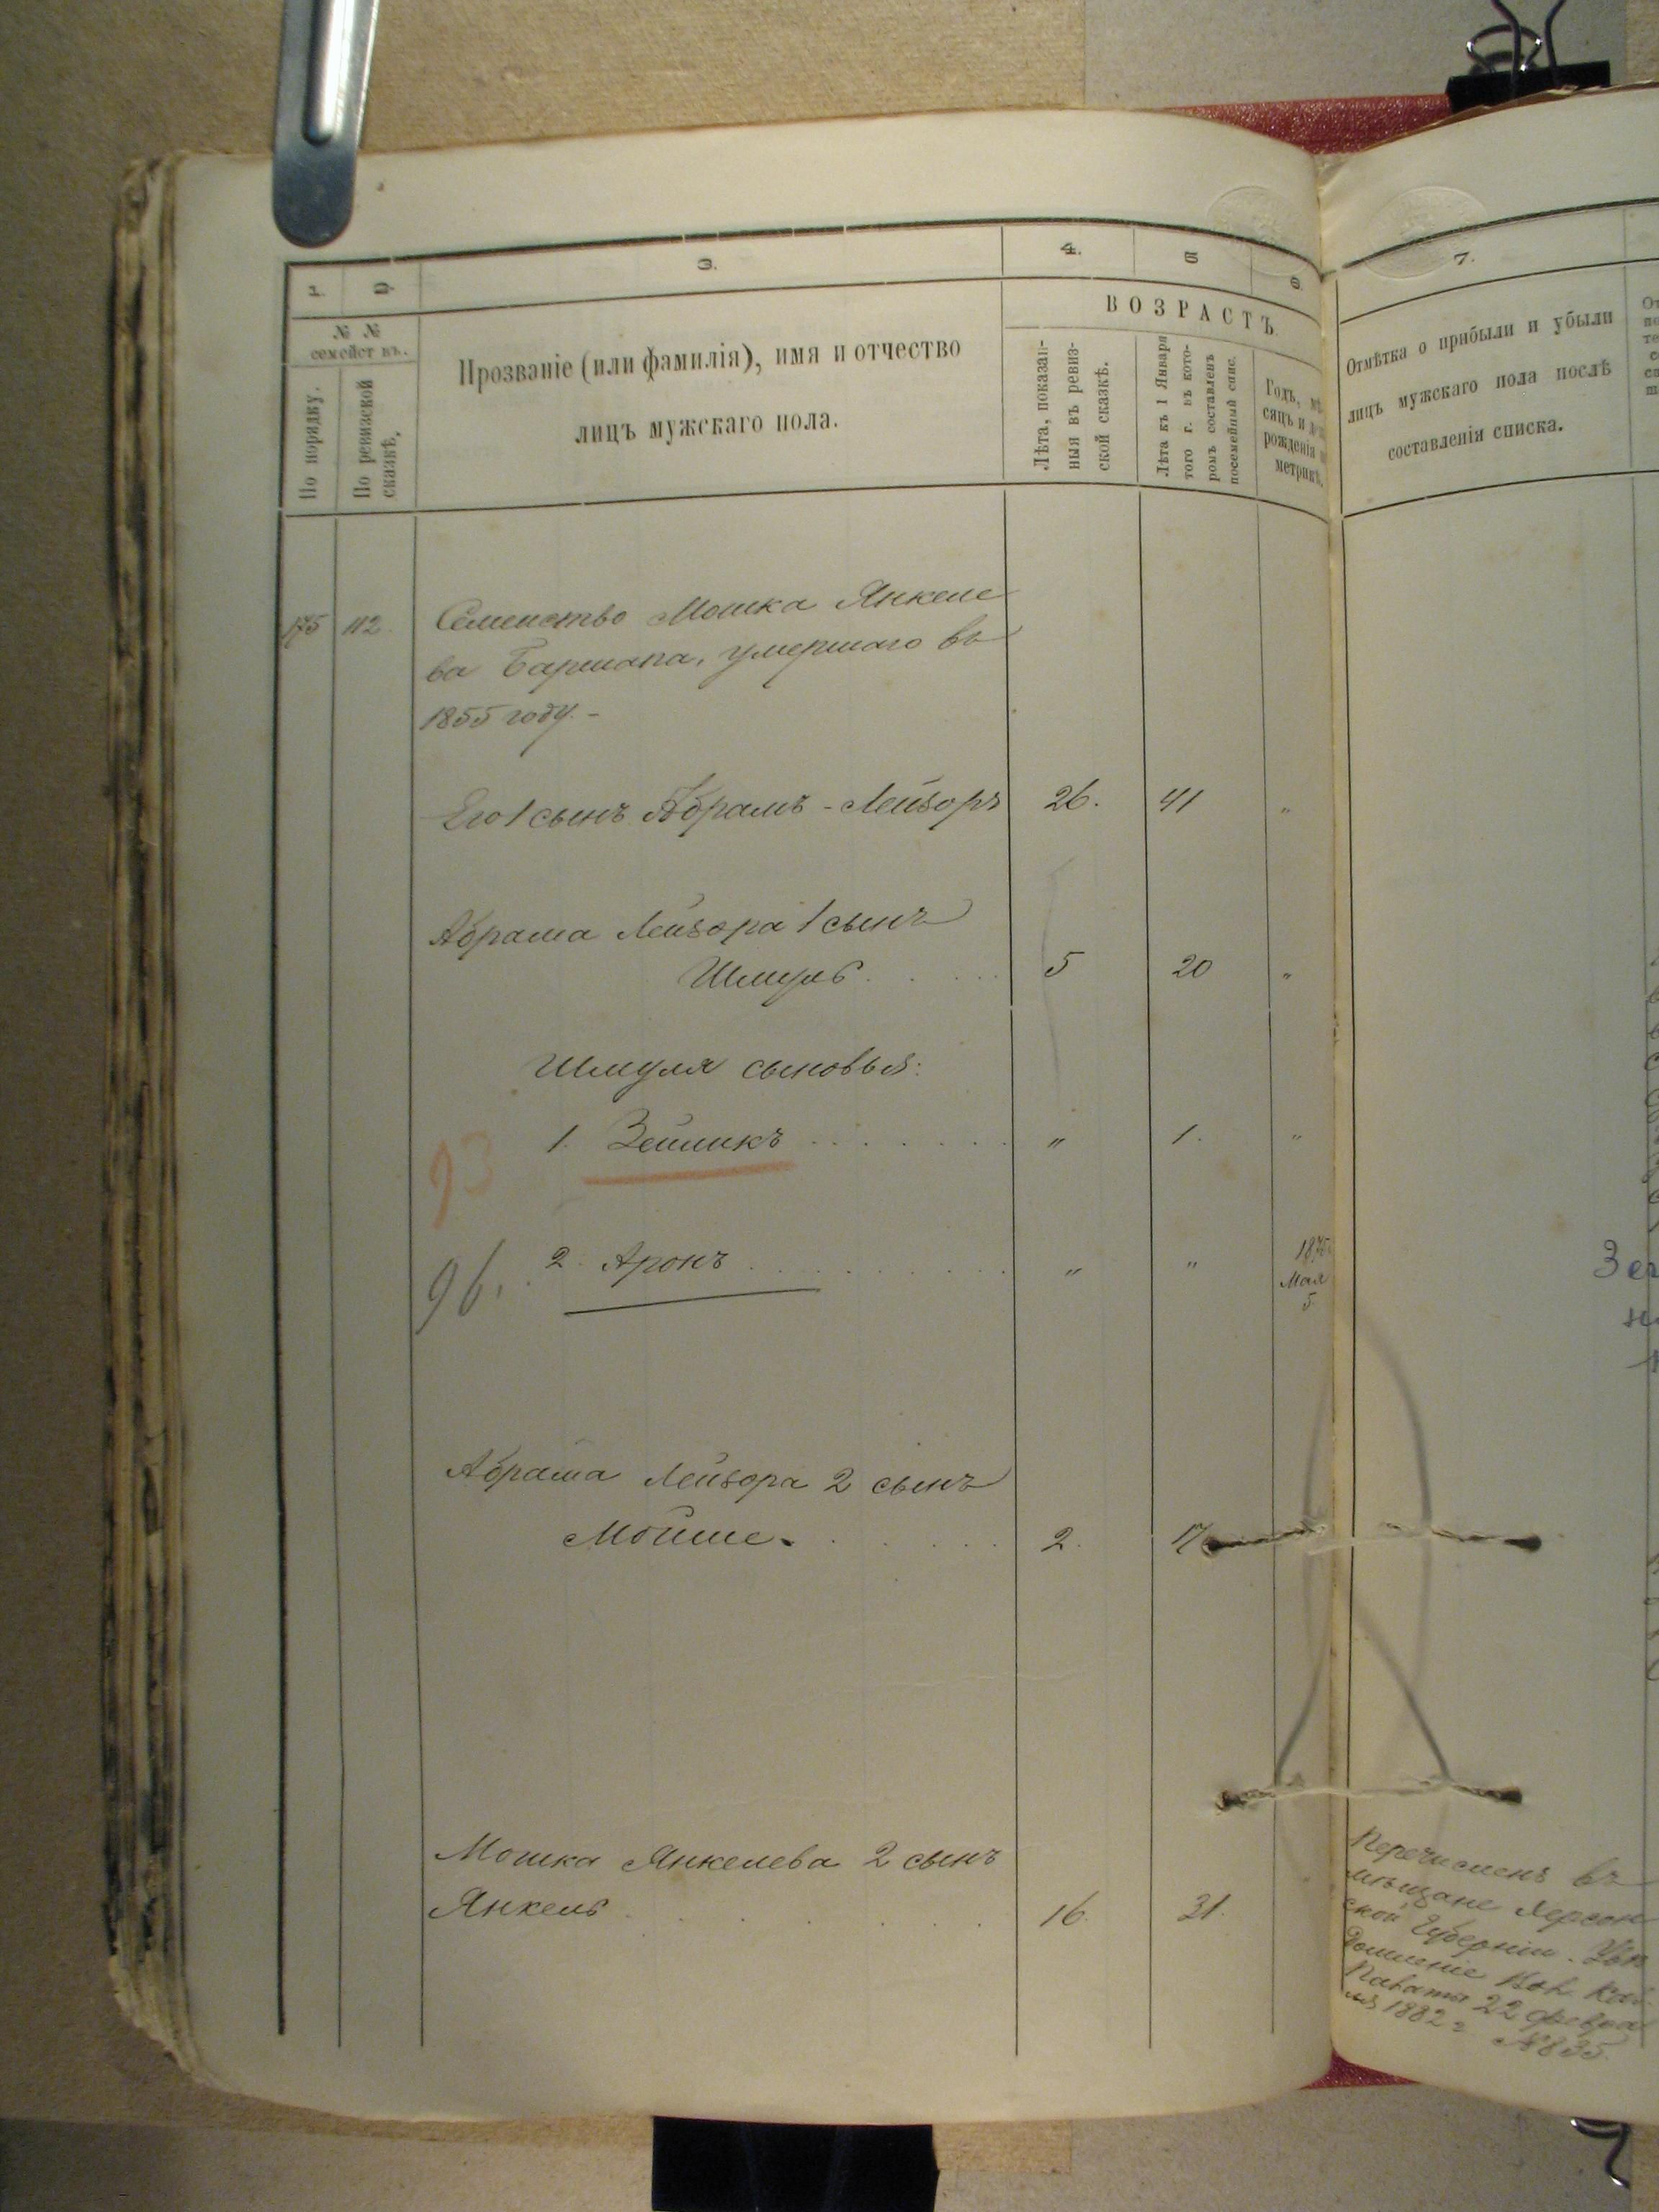 1. 2. 3. 4. 5 6.
№ № семействъ.
По порядку.
По ревизской сказкѣ.
Прозваніе (или фамилія), имя и отчество
лицъ мужскаго пола.
ВОЗРАСТЪ.
Лѣта, показан-
ныя въ ревиз-
ской сказкѣ.
Лѣта къ 1 Января
того г. въ кото-
ромъ составленъ
посемейный спис.
Годъ, мѣ
сяцъ и
рожденія
метрик
175 112 Семейство Мошка Янкеле
ва Баршапа, умершаго въ
1855 году. -
Его 1 сынъ Абрамъ - Лейзоръ 26. 41 "
Абрама Лейзора 1 сынъ
Шмуль 5 20 "
Шмуля сыновья:
93 1. Зейликъ " 1. "
96. 2. Аронъ " " 1875
Мая
5.
Абрама Лейзора 2 сынъ
Мойше. 2. 17
Мошка Янкелева 2 сынъ
Янкель 16. 31.
7.
Отмѣтка о прибыли и убыли
лицъ мужскаго пола послѣ
составленія списка.
Перечисленъ въ
мѣщане Херсон
ской Губерніи. Увѣ
домленіе Каз.
Палаты 22 Февра
ля 1882 г. № 835.